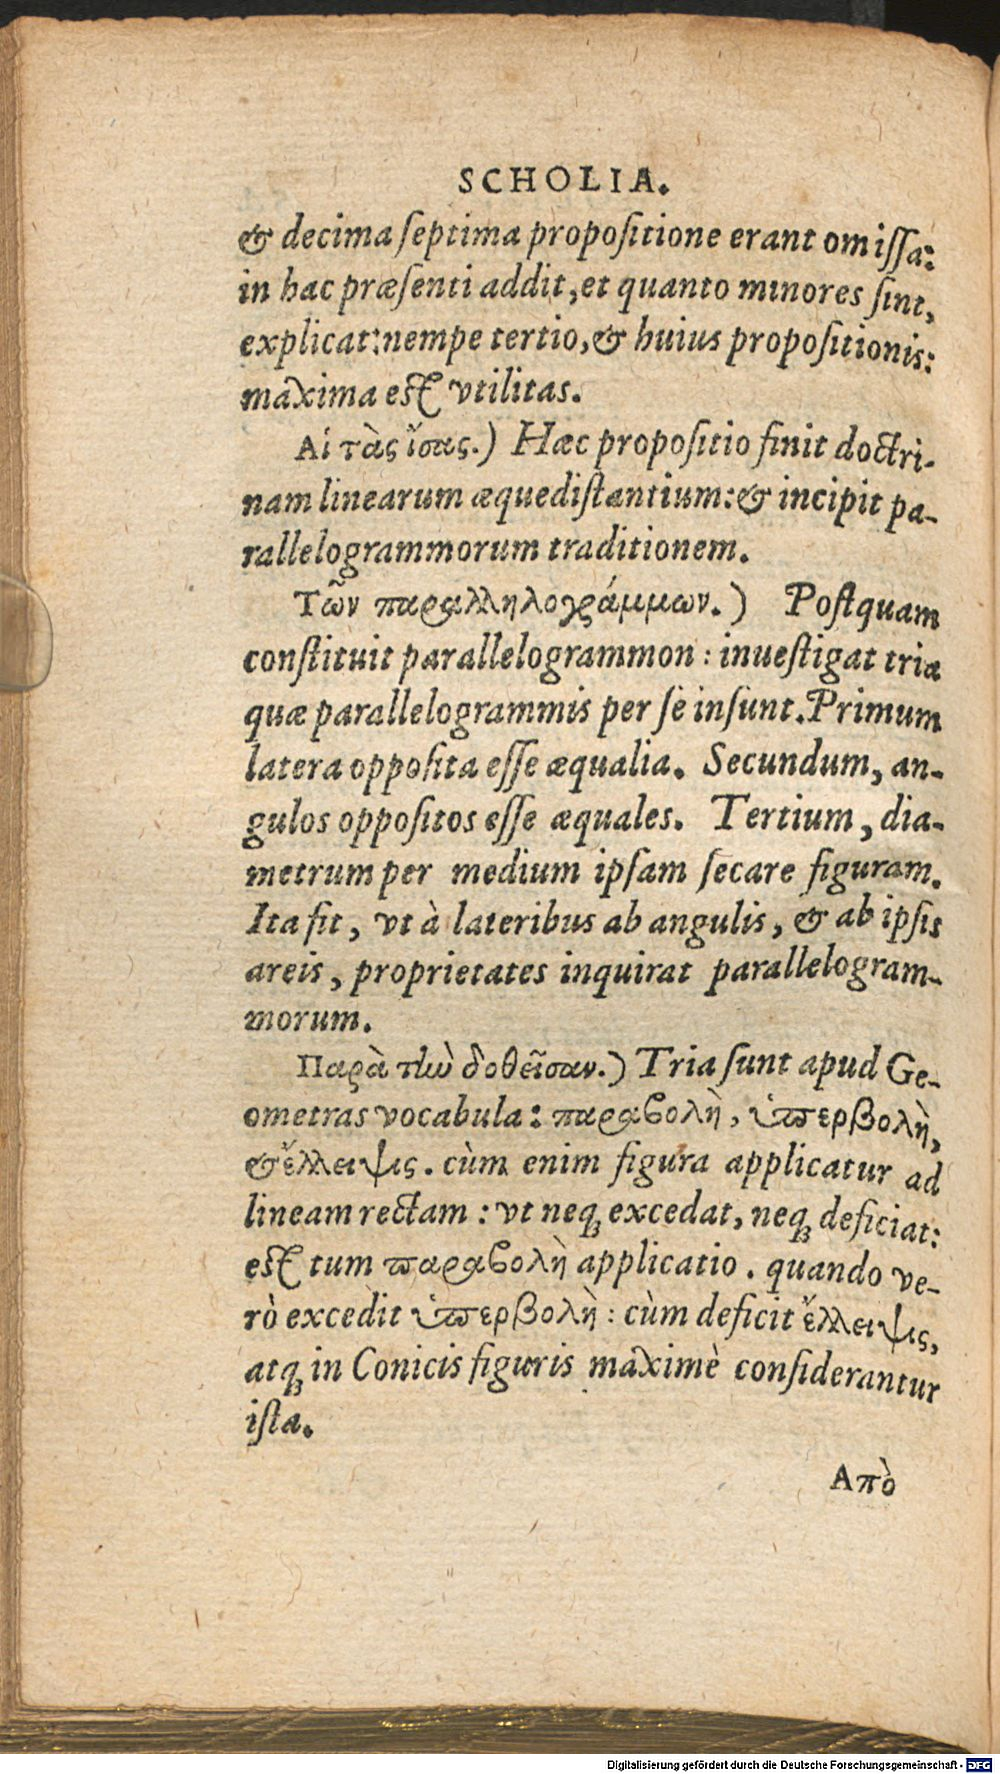 SCHOLIA.
& decima septima propositione erant omissa:
in hac præsenti addit, et quanto minores sint,
explicat: nempe tertio, & huius propositionis:
maxima est vtilitas.
Αἱ τὰς ἴσας.) Hæc propositio finit doctri-
nam linearum æquedistantium: & incipit pa-
rallelogrammorum traditionem.
Τῶν παραλληλογράμμων.) Postquam
constituit parallelogrammon: inuestigat tria
quæ parallelogrammis per se insunt. Primum
latera opposita esse æqualia. Secundum, an-
gulos oppositos esse æquales. Tertium, dia-
metrum per medium ipsam secare figuram.
Ita fit, vt à lateribus ab angulis, & ab ipsis
areis, proprietates inquirat parallelogram-
morum.
Παρὰ τὴν δοθεῖσαν.) Tria sunt apud Ge-
ometras vocabula: παραβολὴ, ὑπερβολὴ,
& ἔλλειψις. cùm enim figura applicatur ad
lineam rectam: vt neq; excedat, neq; deficiat:
est tum παραβολὴ applicatio. quando ve-
rò excedit ὑπερβολὴ: cùm deficit ἔλλειψις,
atq; in Conicis figuris maximè considerantur
ista.
Ἀπὸ
Digitalisierung gefördert durch die Deutsche Forschungsgemeinschaft - DFG